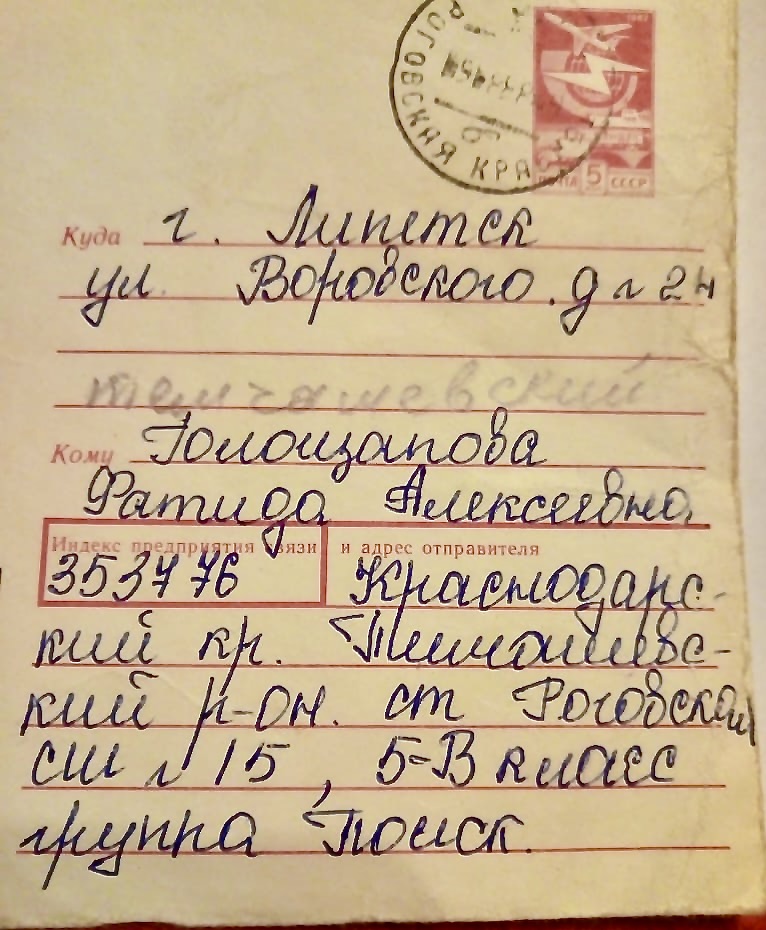 РОГОВСКАЯ КРАСН
6
1982
ПОЧТА 5 СССР
Куда г. Липетск
ул. Воровского. д № 24
Кому Голощапова
Фатида Алексеевна
Индекс предприятия связи и адрес отправителя
353776 Краснодарс-
кий кр. Тимошевс-
кий р-он. ст Роговской
СШ № 15, 5-В класс
группа Поиск.